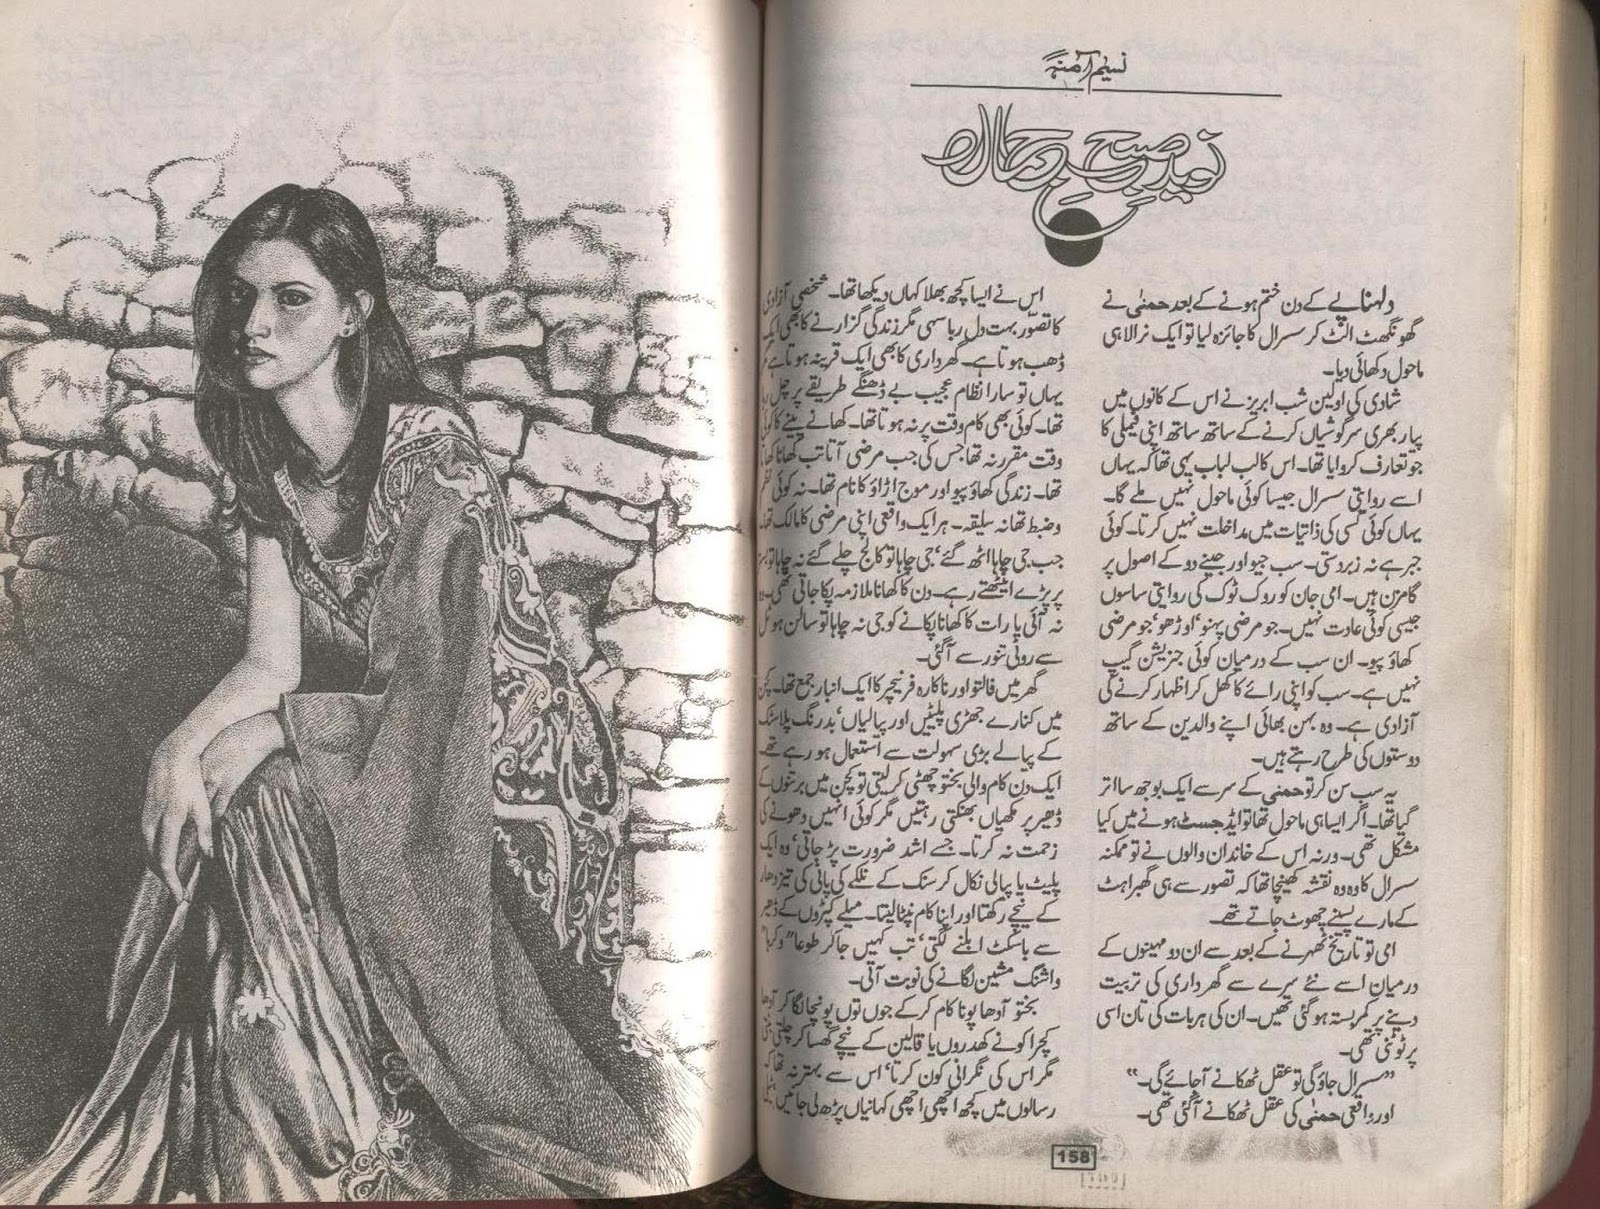 نسیم آمنہ
نوید صبح جمال دو
دلہناپے کے دن ختم ہونے کے بعد حمنیٰ نے
گھونگھٹ الٹ کر سسرال کا جائزہ لیا تو ایک نرالا ہی
ماحول دکھائی دیا۔
شادی کی اولین شب ابریز نے اس کے کانوں میں
پیار بھری سرگوشیاں کرنے کے ساتھ ساتھ اپنی فیملی کا
جو تعارف کروایا تھا۔ اس کا لب لباب یہی تھا کہ یہاں
اسے روایتی سسرال جیسا کوئی ماحول نہیں ملے گا۔
یہاں کوئی کسی کی ذاتیات میں مداخلت نہیں کرتا۔ کوئی
جبر ہے نہ زبردستی۔ سب جیو اور جینے دو کے اصول پر
گامزن ہیں۔ امی جان کو روک ٹوک کی روایتی ساسوں
جیسی کوئی عادت نہیں۔ جو مرضی پہنو‘ اوڑھو‘ جو مرضی
کھاؤ پیو۔ ان سب کے درمیان کوئی جنریشن گیپ
نہیں ہے۔ سب کو اپنی رائے کا کھل کر اظہار کرنے کی
آزادی ہے۔ وہ بہن بھائی اپنے والدین کے ساتھ
دوستوں کی طرح رہتے ہیں۔
یہ سب سن کر تو حمنیٰ کے سر سے ایک بوجھ سا اتر
گیا تھا۔ اگر ایسا ہی ماحول تھا تو ایڈجسٹ ہونے میں کیا
مشکل تھی۔ ورنہ اس کے خاندان والوں نے تو ممکنہ
سسرال کا وہ وہ نقشہ کھینچا تھا کہ تصور سے ہی گھبراہٹ
کے مارے پسینے چھوٹ جاتے تھے۔
امی تو تاریخ ٹھہرنے کے بعد سے ان دو مہینوں کے
درمیان اسے نئے سرے سے گھرداری کی تربیت
دینے پر کمربستہ ہو گئی تھیں۔ ان کی ہر بات کی تان اسی
پر ٹوٹتی تھی۔
”سسرال جاؤ گی تو عقل ٹھکانے آجائے گی۔“
اور واقعی حمنیٰ کی عقل ٹھکانے آگئی تھی۔
اس نے ایسا کچھ بھلا کہاں دیکھا تھا۔ شخصی آزادی
کا تصور بہت دل ربا سہی مگر زندگی گزارنے کا بھی ایک
ڈھب ہوتا ہے۔ گھرداری کا بھی ایک قرینہ ہوتا ہے
یہاں تو سارا نظام عجیب بے ڈھنگے طریقے پر چل
تھا۔ کوئی بھی کام وقت پر نہ ہوتا تھا۔ کھانے پینے کا کوئی
وقت مقرر نہ تھا جس کی جب مرضی آتا تب کھانا
تھا۔ زندگی کھاؤ پیو اور موج اڑاؤ کا نام تھا۔ نہ کوئی نظم
و ضبط تھا نہ سلیقہ۔ ہر ایک واقعی اپنی مرضی کا مالک تھا
جب جی چاہا اٹھ گئے‘ جی چاہا تو کالج چلے گئے نہ چاہا تو
پر پڑے اینٹھتے رہے۔ دن کا کھانا ملازمہ پکا جاتی تھی۔
نہ آئی یا رات کا کھانا پکانے کو جی نہ چاہا تو سالن ہوٹل
سے روٹی تنور سے آگئی۔
گھر میں فالتو اور ناکارہ فرنیچر کا ایک انبار جمع تھا۔ کچن
میں کنارے جھڑی پلیٹیں اور پیالیاں‘ بدرنگ پلاسٹک
کے پیالے بڑی سہولت سے استعمال ہو رہے تھے
ایک دن کام والی بختو چھٹی کر لیتی تو کچن میں برتنوں کے
ڈھیر پر مکھیاں بھنکتی رہتیں مگر کوئی انہیں دھونے کی
زحمت نہ کرتا۔ جسے اشد ضرورت پڑ جاتی‘ وہ ایک
پلیٹ یا پیالی نکال کر سنک کے نلکے کی پانی کی تیز دھار
کے نیچے رکھتا اور اپنا کام نپٹا لیتا۔ میلے کپڑوں کے ڈھیر
سے باسکٹ ابلنے لگتی‘ تب کہیں جا کر طوعا" و کرہا"
واشنگ مشین لگانے کی نوبت آتی۔
بختو آدھا پونا کام کر کے جوں توں پونچا لگا کر آدھا
کچرا کونے کھدروں یا قالین کے نیچے گھسا کر چلتی بنتی
مگر اس کی نگرانی کون کرتا‘ اس سے بہتر نہ تھا کہ
رسالوں میں کچھ اچھی اچھی کہانیاں پڑھ لی جائیں
158